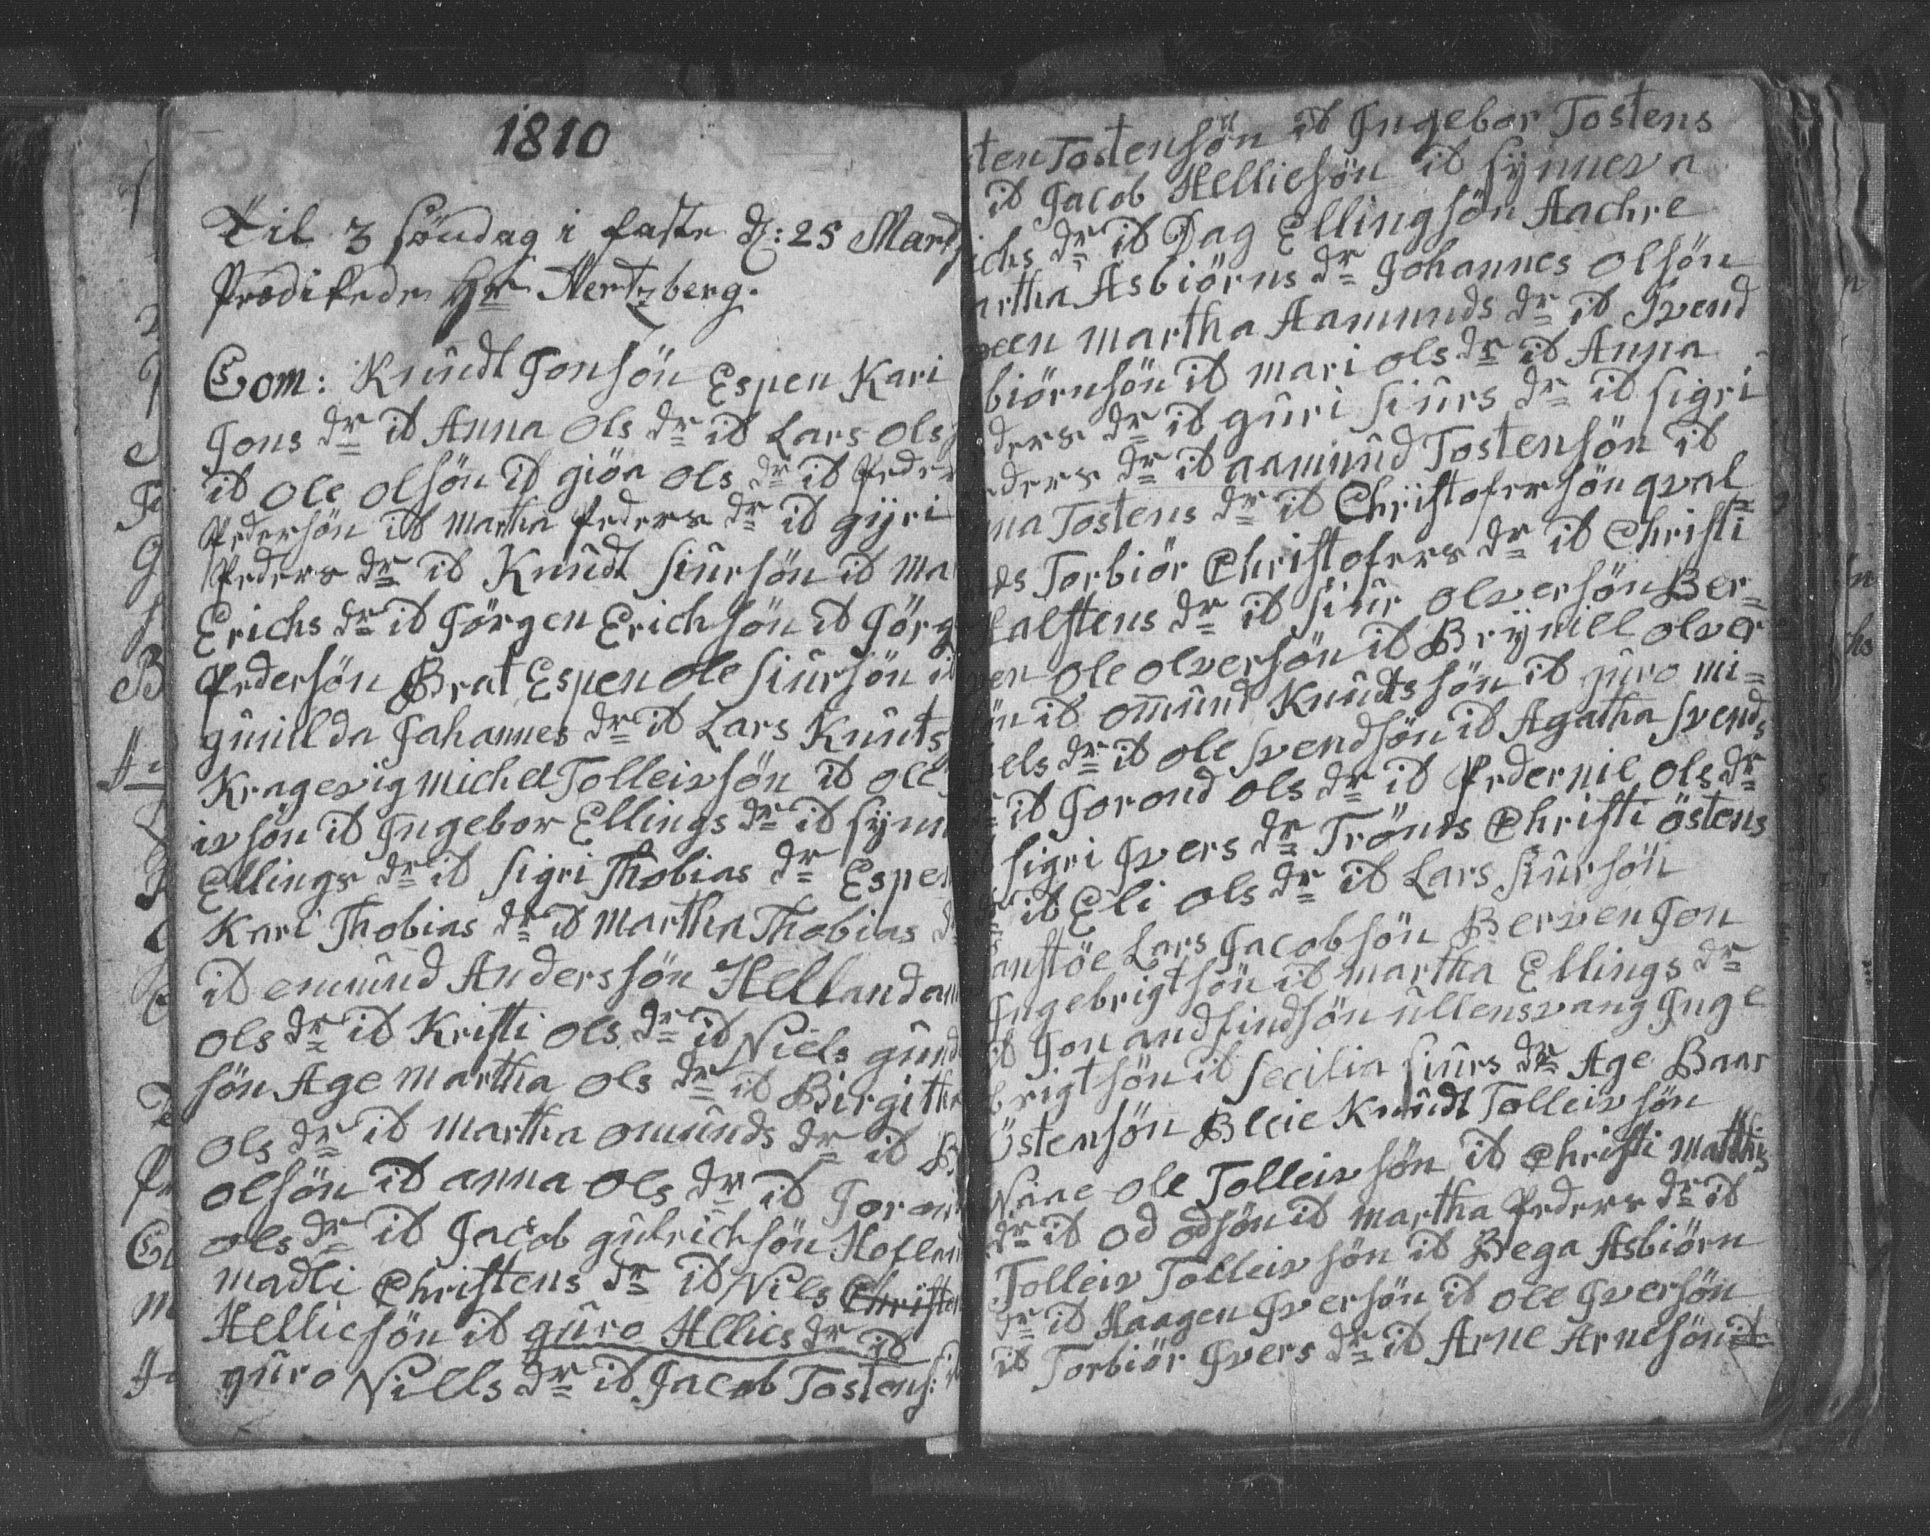 1810
Til 3 söndag i faste d: 25 Marty
Prædikede Hr Hertzberg.
Com: Knudt Jonsön Espen Kari
Jons dr it Anna Ols dr it Lars Ols
it Ole Olsön it giöa Ols dr it Peder
Pedersön it Martha Peders dr it gyri
Peders dr it Knudt Siursön it Ma
Erichs dr it Jörgen Erichsön it Jörg
Pedersön Brat Espen Ole Siursön it
gunillda Jahannes dr it Lars Knuts
Kragevig Michel Tolleivsön it Ole
ivsön it Ingebor Ellings dr it Synn
Ellings dr it Sigri Thobias dr Espen
Kari Thobias dr it Martha Thobias dr
it emund Anderssön Helland an
Ols dr it Kristi Ols dr it Niels gund
sön Age Martha Ols dr it Birgitha
Ols dr it Martha Omunds dr it B
Olsön it anna Ols dr it Joran
Ols dr it Jacob gulrichsön Hofland
madli Christens dr it Nils Christen
Helliesön it guro Hellies dr it
guro Niells dr it Jacob Tostens:
sten Tostensön it Ingebor Tostens
it Jacob Helliesön it Synneva
ichs dr it Dag Ellingsön Aachre
artha Asbiörns dr Johannes Olsön
veen Martha Aamunds dr it Svend
biörnsön it Mari Ols dr it Anna
ders dr it guri Siurs dr it Sigri
ders dr it aamund Tostensön it
na Tostens dr it Christofersön qval
ds Torbiör Christofers dr it Christi
Halstens dr it Siur Olversön Ber=
ven Ole Olversön it Brynill Olver
ön it omund Knudtssön it guro mi=
hels dr it Ole Svendsön it Agatha Svends
dr it Jorond Ols dr it Pedernil Ols dr
Sigri Ivers dr Trönes Christi Östens
dr it Eli Ols dr it Lars Siursön
anstöe Lars Jacobsön Berven Jon
Ingebrigtsön it Martha Ellings dr
it Jon andfindsön Ullensvang Inge
brigtsön it Secilia Siurs dr Age Baar
Östensön Bleie Knudt Tolleivsön
Naae Ole Tolleivsön it Christi Matthis
dr it Od Odsön it Martha Peders dr it
Tolleiv Tolleivsön it Brega Asbiörn
dr it Haagen Iversön it Ole Iversön
it Torbiör Ivers dr it Arne Arnesön it